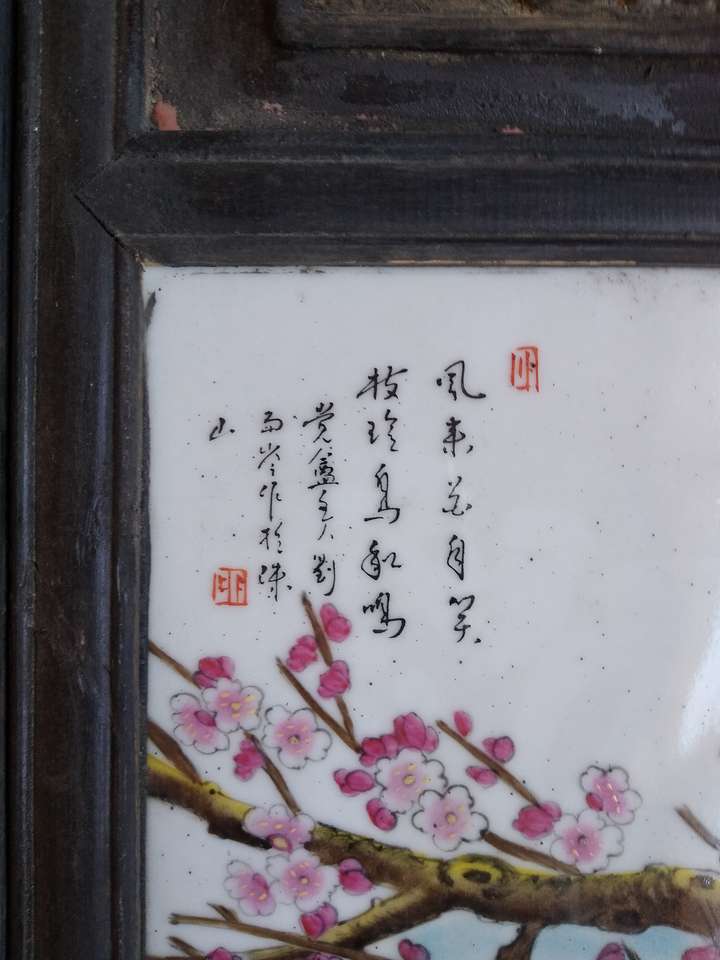 風來花自笑
枝珍鳥和鳴
觉盦主人劉
雨岑作於珠
山